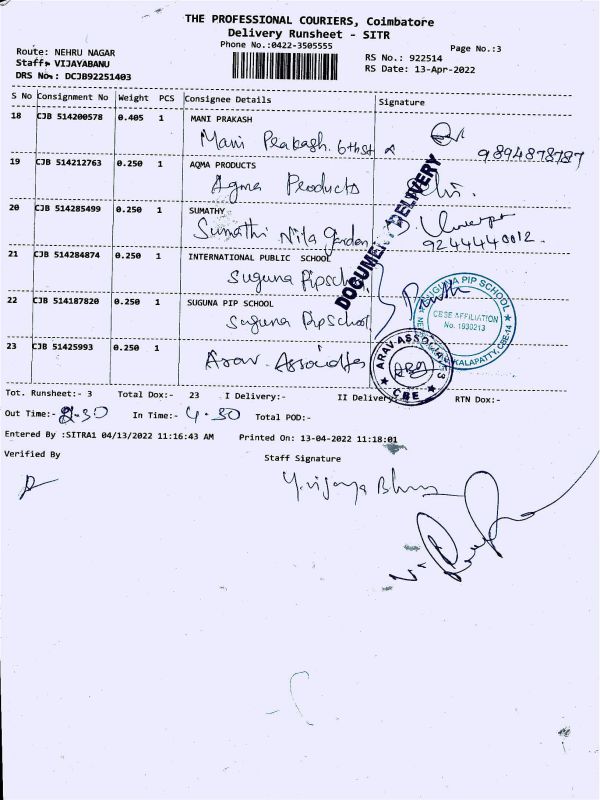 THE PROFESSIONAL COURIERS, Coimbatore
Delivery Runsheet - SITR
Phone No.:0422-3505555
Page No.:3
Route: NEHRU NAGAR
Staff: VIJAYABANU
DRS No.: DCJB92251403
RS No.: 922514
RS Date: 13-Apr-2022
S No Consignment No Weight PCS Consignee Details Signature
18 CJB 514200578 0.405 1 MANI PRAKASH
Mani Prakash. 6th st
9894878787
19 CJB 514212763 0.250 1 AQMA PRODUCTS
Aqma Products
20 CJB 514285499 0.250 1 SUMATHY
Sumathi Nila Garden
9244440012.
21 CJB 514284874 0.250 1 INTERNATIONAL PUBLIC SCHOOL
Suguna Pip school
22 CJB 514187820 0.250 1 SUGUNA PIP SCHOOL
Suguna Pip School
23 CJB 51425993 0.250 1
Arav. Associates
DOCUMENT DELIVERY
SUGUNA PIP SCHOOL
CBSE AFFILIATION
No. 1930213
KALAPATTY, CBE-14
ARAV-ASSOCIATES
CBE
Tot. Runsheet:- 3 Total Dox:- 23 I Delivery:- II Delivery:- RTN Dox:-
Out Time:- 2.30 In Time:- 4.30 Total POD:-
Entered By :SITRA1 04/13/2022 11:16:43 AM Printed On: 13-04-2022 11:18:01
Verified By Staff Signature
Y.vijaya Bhanu